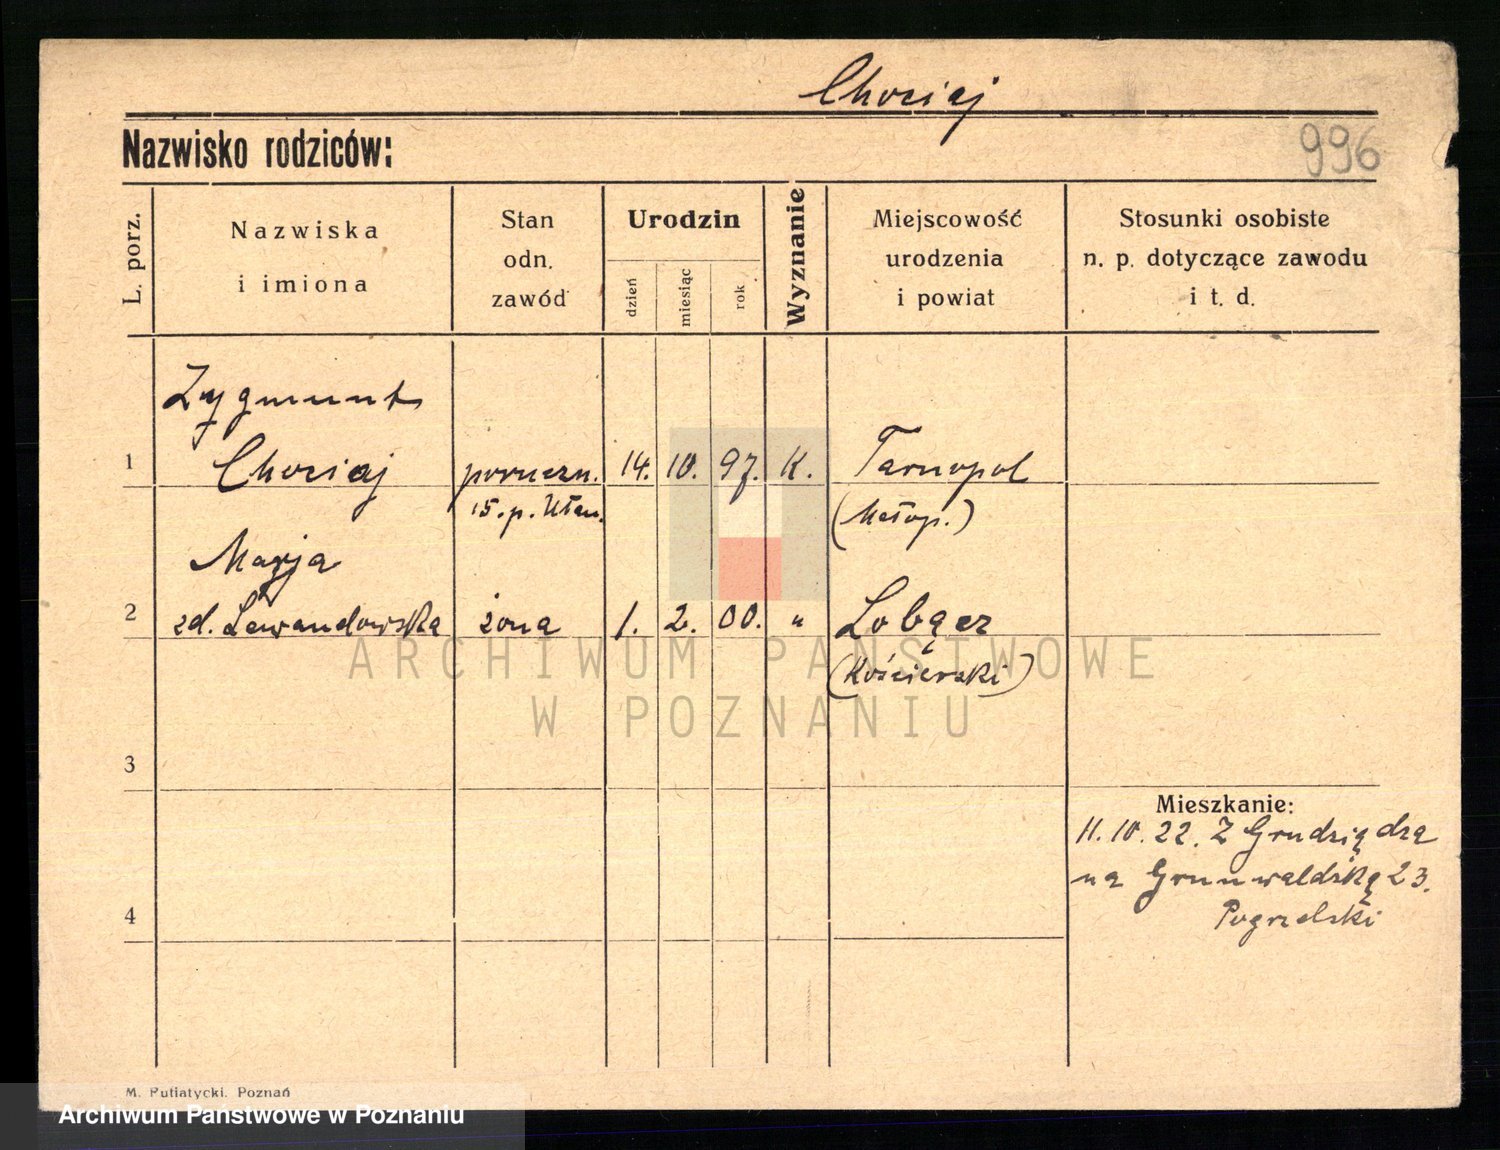 Chociaj
Nazwisko rodziców:
996
L. porz.
Nazwiska
i imiona
Stan
odn.
zawód
Urodzin
dzień
miesiąc
rok
Wyznanie
Miejscowość
urodzenia
i powiat
Stosunki osobiste
n. p. dotyczące zawodu
i t. d.
Zygmunt
1 Chociaj poruczn. 14. 10. 97. K. Tarnopol
15. p. Ułan. (Małop.)
Marja
2 zd. Lewandowska żona 1. 2. 00. " Lobącz
(Kościerski)
ARCHIWUM PAŃSTWOWE
W POZNANIU
3
Mieszkanie:
11. 10. 22. Z Grudziądza
na Grunwaldzką 23.
4
Pogrzelski
M. Putiatycki. Poznań
Archiwum Państwowe w Poznaniu